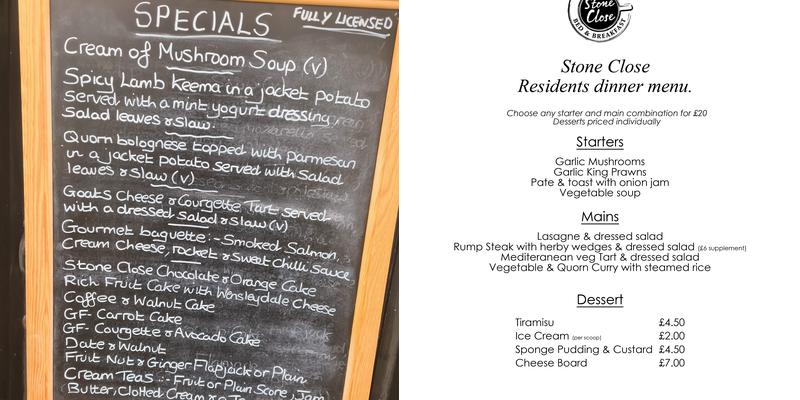 SPECIALS
FULLY LICENSED
Cream of Mushroom Soup (v)
Spicy Lamb Keema in a jacket potato
Served with a mint yogurt dressing
Salad leaves & Slaw.
Quorn bolognese topped with parmesan
in a jacket potato served with Salad
leaves & Slaw (v)
Goats Cheese & Courgette Tart served
with a dressed salad & slaw (v)
Gourmet baguette :- Smoked Salmon,
Cream Cheese, rocket & Sweet Chilli Sauce
Stone Close Chocolate & Orange Cake
Rich Fruit Cake with Wensleydale Cheese
Coffee & Walnut Cake
GF- Carrot Cake
GF- Courgette & Avocado Cake
Date & Walnut
Fruit Nut & Ginger Flapjack or Plain
Cream Teas :- Fruit or Plain Scone, Jam
Butter, Clotted Cream &
Stone
Close
BED & BREAKFAST
Stone Close
Residents dinner menu.
Choose any starter and main combination for £20
Desserts priced individually
Starters
Garlic Mushrooms
Garlic King Prawns
Pate & toast with onion jam
Vegetable soup
Mains
Lasagne & dressed salad
Rump Steak with herby wedges & dressed salad (£6 supplement)
Mediterranean veg Tart & dressed salad
Vegetable & Quorn Curry with steamed rice
Dessert
Tiramisu £4.50
Ice Cream (per scoop) £2.00
Sponge Pudding & Custard £4.50
Cheese Board £7.00